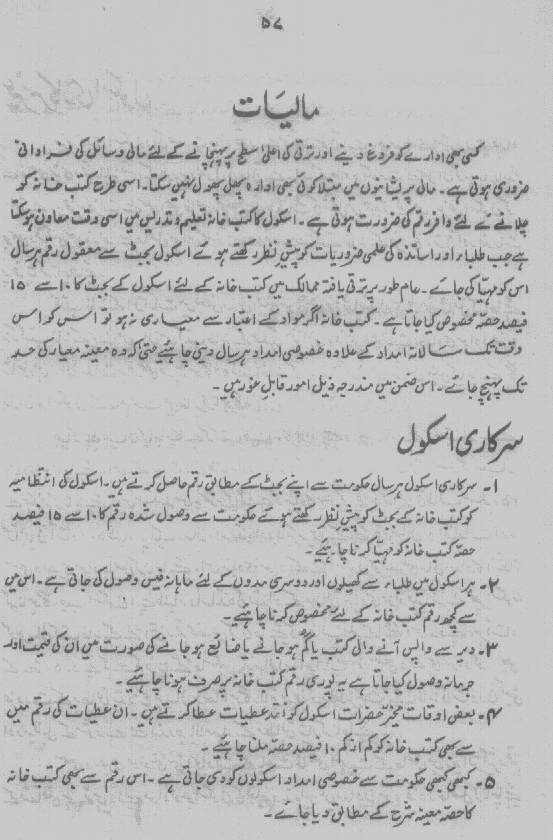 ۵۷
مالیَات
کسی بھی ادارے کو فروغ دینے اور ترقی کی اعلیٰ سطح پر پہنچانے کے لئے مالی وسائل کی فراوانی
ضروری ہوتی ہے۔ مالی پریشانیوں میں مبتلا کوئی بھی ادارہ پھل پھول نہیں سکتا۔ اسی طرح کتب خانہ کو
چلانے کے لئے وافر رقم کی ضرورت ہوتی ہے۔ اسکول کا کتب خانہ تعلیم و تدریس میں اسی وقت معاون ہو سکتا
ہے جب طلباء اور اساتذہ کی علمی ضروریات کو پیشِ نظر رکھتے ہوئے اسکول بجٹ سے معقول رقم ہر سال
اس کو مہیّا کی جائے۔ عام طور پر ترقی یافتہ ممالک میں کتب خانہ کے لئے اسکول کے بجٹ کا ۱۰ سے ۱۵
فیصد حصّہ مخصوص کیا جاتا ہے۔ کتب خانہ اگر مواد کے اعتبار سے معیاری نہ ہو تو اس کو اس
وقت تک سالانہ امداد کے علاوہ خصوصی امداد ہر سال دینی چاہئیے حتیٰ کہ وہ معینہ معیار کی حد
تک پہنچ جائے۔ اس ضمن میں مندرجہ ذیل امور قابلِ غور ہیں۔
سرکاری اسکول
۱۔ سرکاری اسکول ہر سال حکومت سے اپنے بجٹ کے مطابق رقم حاصل کرتے ہیں۔ اسکول کی انتظامیہ
کو کتب خانہ کے بجٹ کو پیشِ نظر رکھتے ہوئے حکومت سے وصول شدہ رقم کا ۱۰ سے ۱۵ فیصد
حصّہ کتب خانہ کو مہیّا کرنا چاہئیے۔
۲۔ ہر اسکول میں طلباء سے کھیلوں اور دوسری مدوں کے لئے ماہانہ فیس وصول کی جاتی ہے۔ اس میں
سے کچھ رقم کتب خانہ کے لئے مخصوص کرنا چاہئیے۔
۳۔ دیر سے واپس آنے والی کتب یا گُم ہو جانے یا ضائع ہو جانے کی صورت میں ان کی قیمت اور
جرمانہ وصول کیا جاتا ہے یہ پوری رقم کتب خانہ پر صرف ہونا چاہئیے۔
۴۔ بعض اوقات مخیّر حضرات اسکول کو نقد عطیات عطا کرتے ہیں۔ ان عطیات کی رقم میں
سے بھی کتب خانہ کو کم از کم ۱۰ فیصد حصّہ ملنا چاہئیے۔
۵۔ کبھی کبھی حکومت سے خصوصی امداد اسکولوں کو دی جاتی ہے۔ اس رقم سے بھی کتب خانہ
کا حصّہ معینہ شرح کے مطابق دیا جائے۔